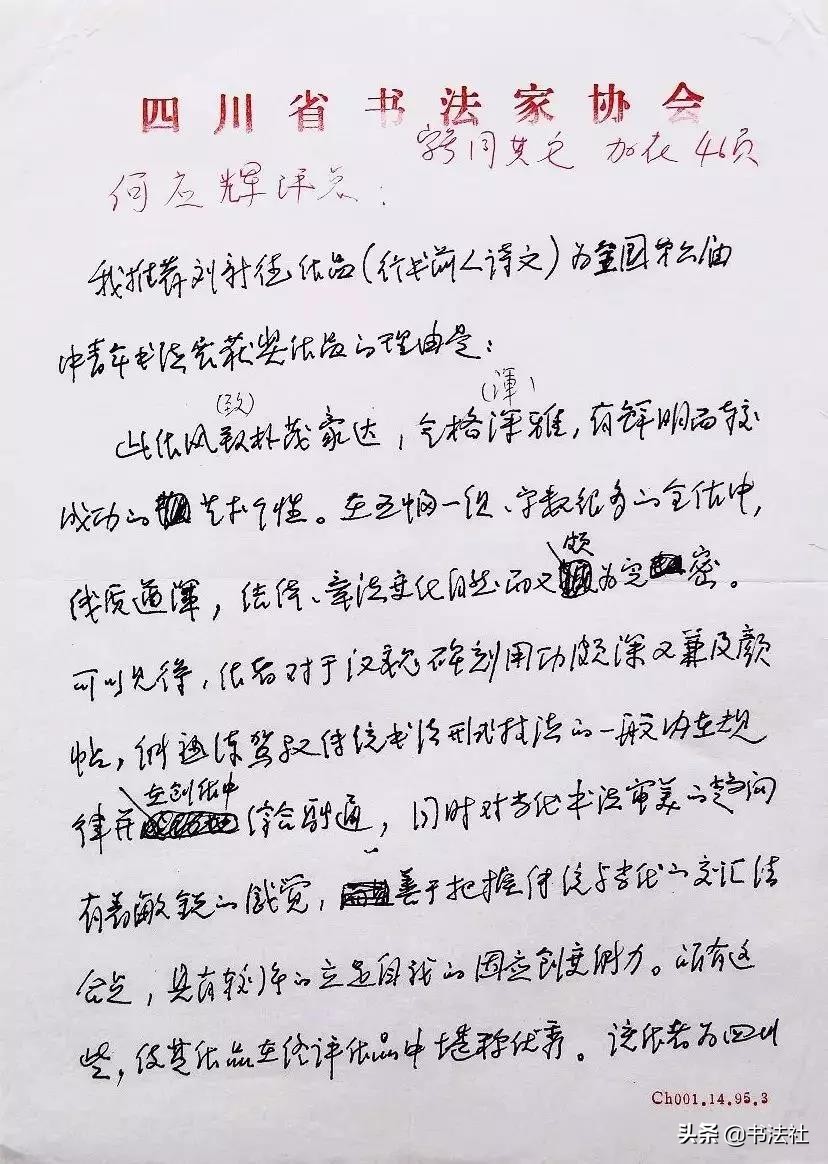 四川省书法家协会
字号同其它 加在46页
何应辉评点：
我推荐刘新德作品（行书前人诗文）为全国第六届
中青年书法展获奖作品的理由是：
（致） （渾）
此作风致朴茂豪达，格深雅，有鲜明而较
成功的艺术个性。在五幅一组、字数很多的全作中，
颇
线质遒渾，结体、章法变化自然而又为完密。
可以见得，作者对于汉魏碑刻用功颇深又兼及颜
帖，能熟练驾驭传统书法形式技法的一般内在规
在创作中
律并综合融通，同时对当代书法审美的趋向
有着敏锐的感觉，善于把握传统与当代的交汇结
合点，具有较强的立足自我的因应创变能力。所有这
些，使其作品在终评作品中堪称优秀。该作者为四川
Ch001.14.95.3
头条 @书法社